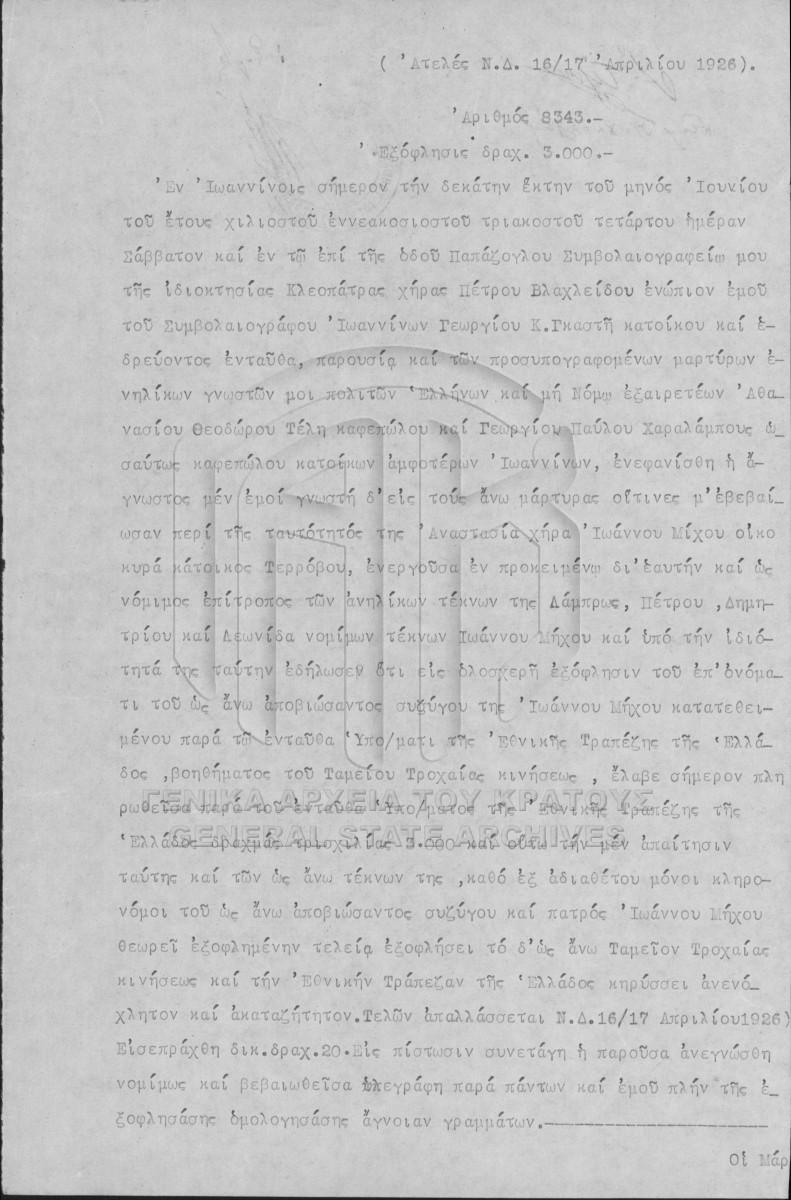 ( Ἀτελές Ν.Δ. 16/17 Ἀπριλίου 1926).
Ἀριθμός 8343.-
Ἐξόφλησις δραχ. 3.000.-
Ἐν Ἰωαννίνοις σήμερον τήν δεκάτην ἕκτην τοῦ μηνός Ἰουνίου
τοῦ ἔτους χιλιοστοῦ ἐννεακοσιοστοῦ τριακοστοῦ τετάρτου ἡμέραν
Σάββατον καί ἐν τῷ ἐπί τῆς ὁδοῦ Παπάζογλου Συμβολαιογραφείῳ μου
τῆς ἰδιοκτησίας Κλεοπάτρας χήρας Πέτρου Βλαχλείδου ἐνώπιον ἐμοῦ
τοῦ Συμβολαιογράφου Ἰωαννίνων Γεωργίου Κ.Γκαστῆ κατοίκου καί ἑ-
δρεύοντος ἐνταῦθα, παρουσίᾳ καί τῶν προσυπογραφομένων μαρτύρων ἐ-
νηλίκων γνωστῶν μοι πολιτῶν Ἑλλήνων καί μή Νόμῳ ἐξαιρετέων Ἀθα-
νασίου Θεοδώρου Τέλη καφεπώλου καί Γεωργίου Παύλου Χαραλάμπους ὡ-
σαύτως καφεπώλου κατοίκων ἀμφοτέρων Ἰωαννίνων, ἐνεφανίσθη ἡ ἄ-
γνωστος μέν ἐμοί γνωστή δ'εἰς τούς ἄνω μάρτυρας οἵτινες μ'ἐβεβαί-
ωσαν περί τῆς ταυτότητός της Ἀναστασία χήρα Ἰωάννου Μίχου οἰκο
κυρά κάτοικος Τερρόβου, ἐνεργοῦσα ἐν προκειμένῳ δι'ἑαυτήν καί ὡς
νόμιμος ἐπίτροπος τῶν ἀνηλίκων τέκνων της Λάμπρως, Πέτρου ,Δημη-
τρίου καί Λεωνίδα νομίμων τέκνων Ἰωάννου Μήχου καί ὑπό τήν ἰδιό-
τητά της ταύτην ἐδήλωσεν ὅτι εἰς ὁλοσχερῆ ἐξόφλησιν τοῦ ἐπ'ὀνόμα-
τι τοῦ ὡς ἄνω ἀποβιώσαντος συζύγου της Ἰωάννου Μήχου κατατεθει-
μένου παρά τῷ ἐνταῦθα Ὑπο/ματι τῆς Ἐθνικῆς Τραπέζης τῆς Ἑλλά-
δος ,βοηθήματος τοῦ Ταμείου Τροχαίας κινήσεως , ἔλαβε σήμερον πλη
ρωθεῖσα περά τοῦ ἐνταῦθα Ὑπο/ματος τῆς Ἐθνικῆς Τραπέζης τῆς
Ἑλλάδος δραχμάς τρισχιλίας 3.000 καί οὕτω τήν μέν ἀπαίτησιν
ταύτης καί τῶν ὡς ἄνω τέκνων της ,καθό ἐξ ἀδιαθέτου μόνοι κληρο-
νόμοι τοῦ ὡς ἄνω ἀποβιώσαντος συζύγου καί πατρός Ἰωάννου Μήχου
θεωρεῖ ἐξοφλημένην τελείᾳ ἐξοφλήσει τό δ'ὡς ἄνω Ταμεῖον Τροχαίας
κινήσεως καί τήν Ἐθνικήν Τράπεζαν τῆς Ἑλλάδος κηρύσσει ἀνενό-
χλητον καί ἀκαταζήτητον.Τελῶν ἀπαλλάσσεται Ν.Δ.16/17 Ἀπριλίου1926)
Εἰσεπράχθη δικ.δραχ.20.Εἰς πίστωσιν συνετάγη ἡ παροῦσα ἀνεγνώσθη
νομίμως καί βεβαιωθεῖσα ὑπεγράφη παρά πάντων καί ἐμοῦ πλήν τῆς ἐ-
ξοφλησάσης ὁμολογησάσης ἄγνοιαν γραμμάτων.-
Οἱ Μάρ
ΓΕΝΙΚΑ ΑΡΧΕΙΑ ΤΟΥ ΚΡΑΤΟΥΣ
GENERAL STATE ARCHIVES